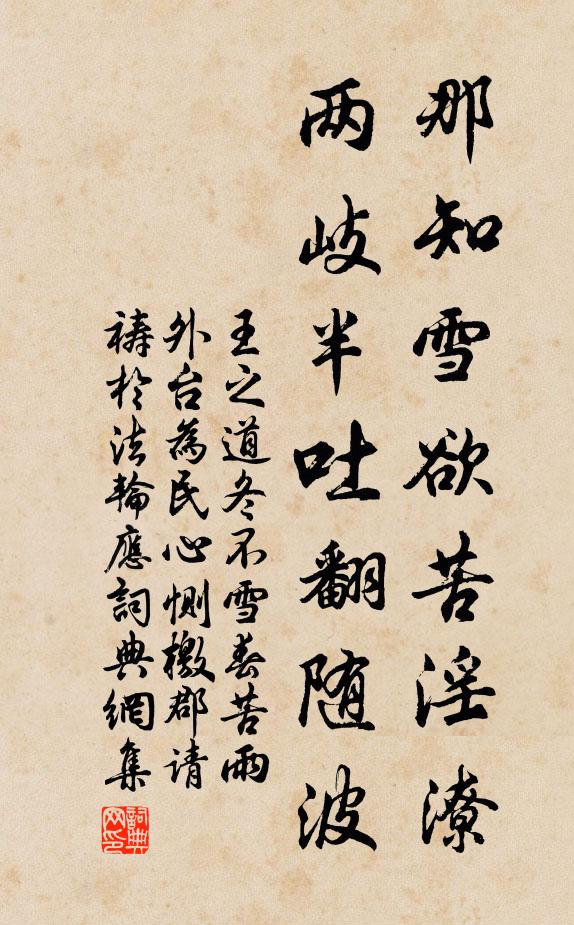 那知雪欲苦淫潦
两岐半吐翻随波
王之道冬不雪春苦雨
外台為民心恻檄郡请
祷於法輪應詞典網集
詞典网印